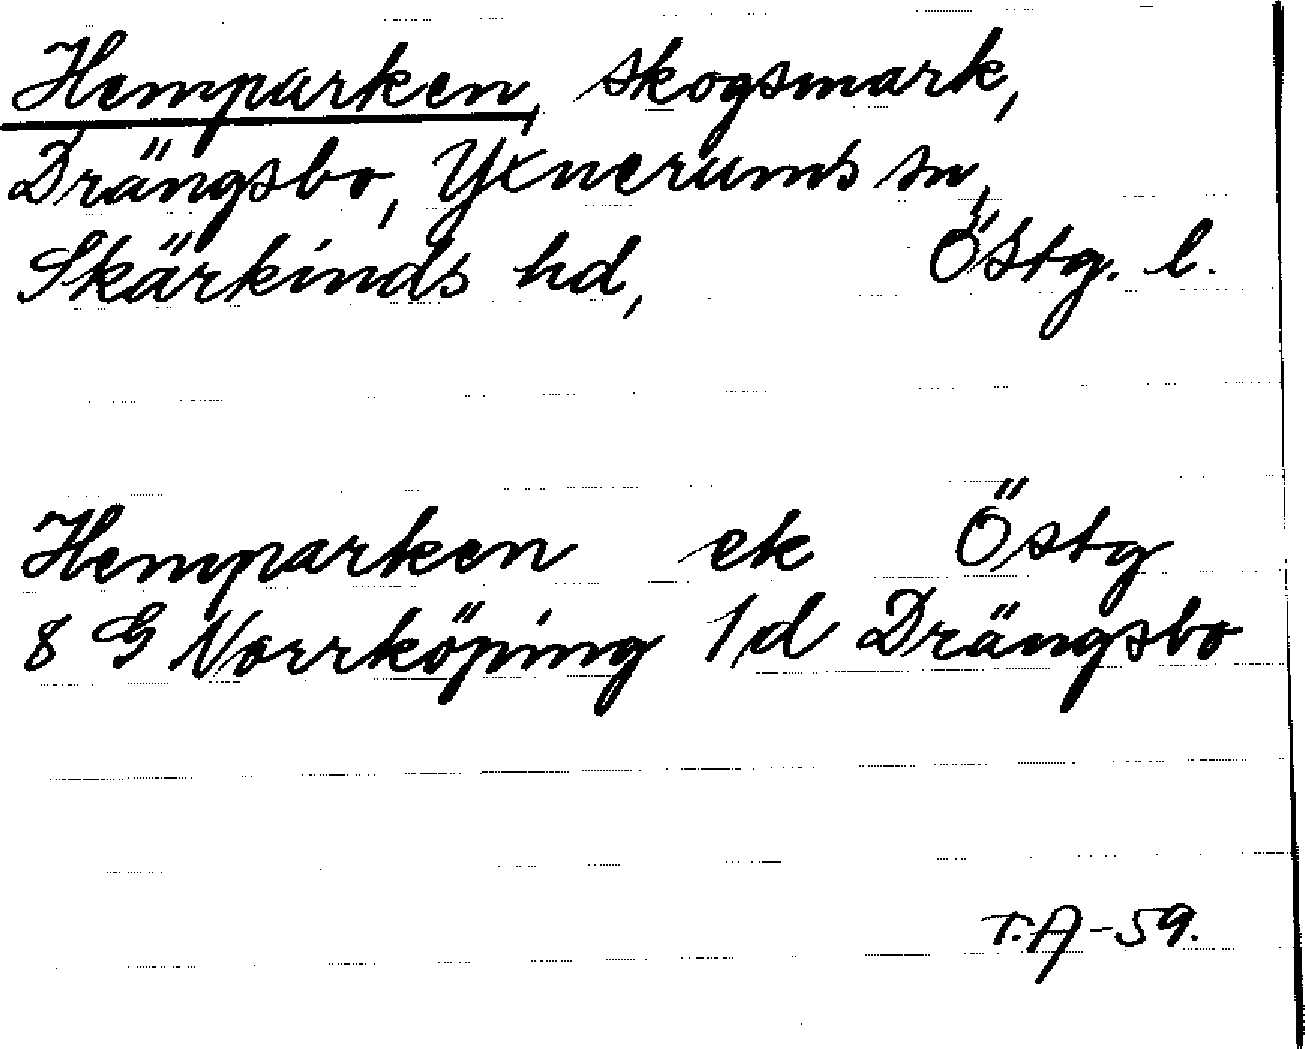 Hemparken, skogsmark,
Drängsbo, Yxnerums sn,
Skärkinds hd, Östg. l.
Hemparken ek Östg
8 G Norrköping 1d Drängsbo
T.A-59.